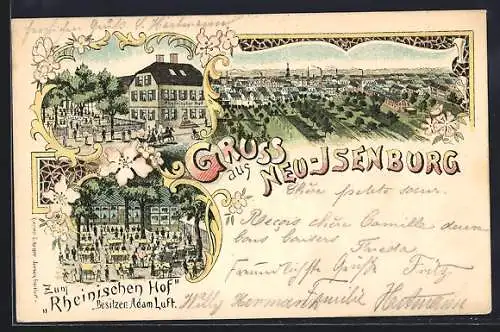 GRUSS
aus
NEU-ISENBURG
Chère petite soeur.
Reçois chère Camille deux
bons baisers Frieda
Freundlichste Grüße Fritz
Willy Hermann Familie
Zum
"Rheinischen Hof"
Besitzer: Adam Luft.